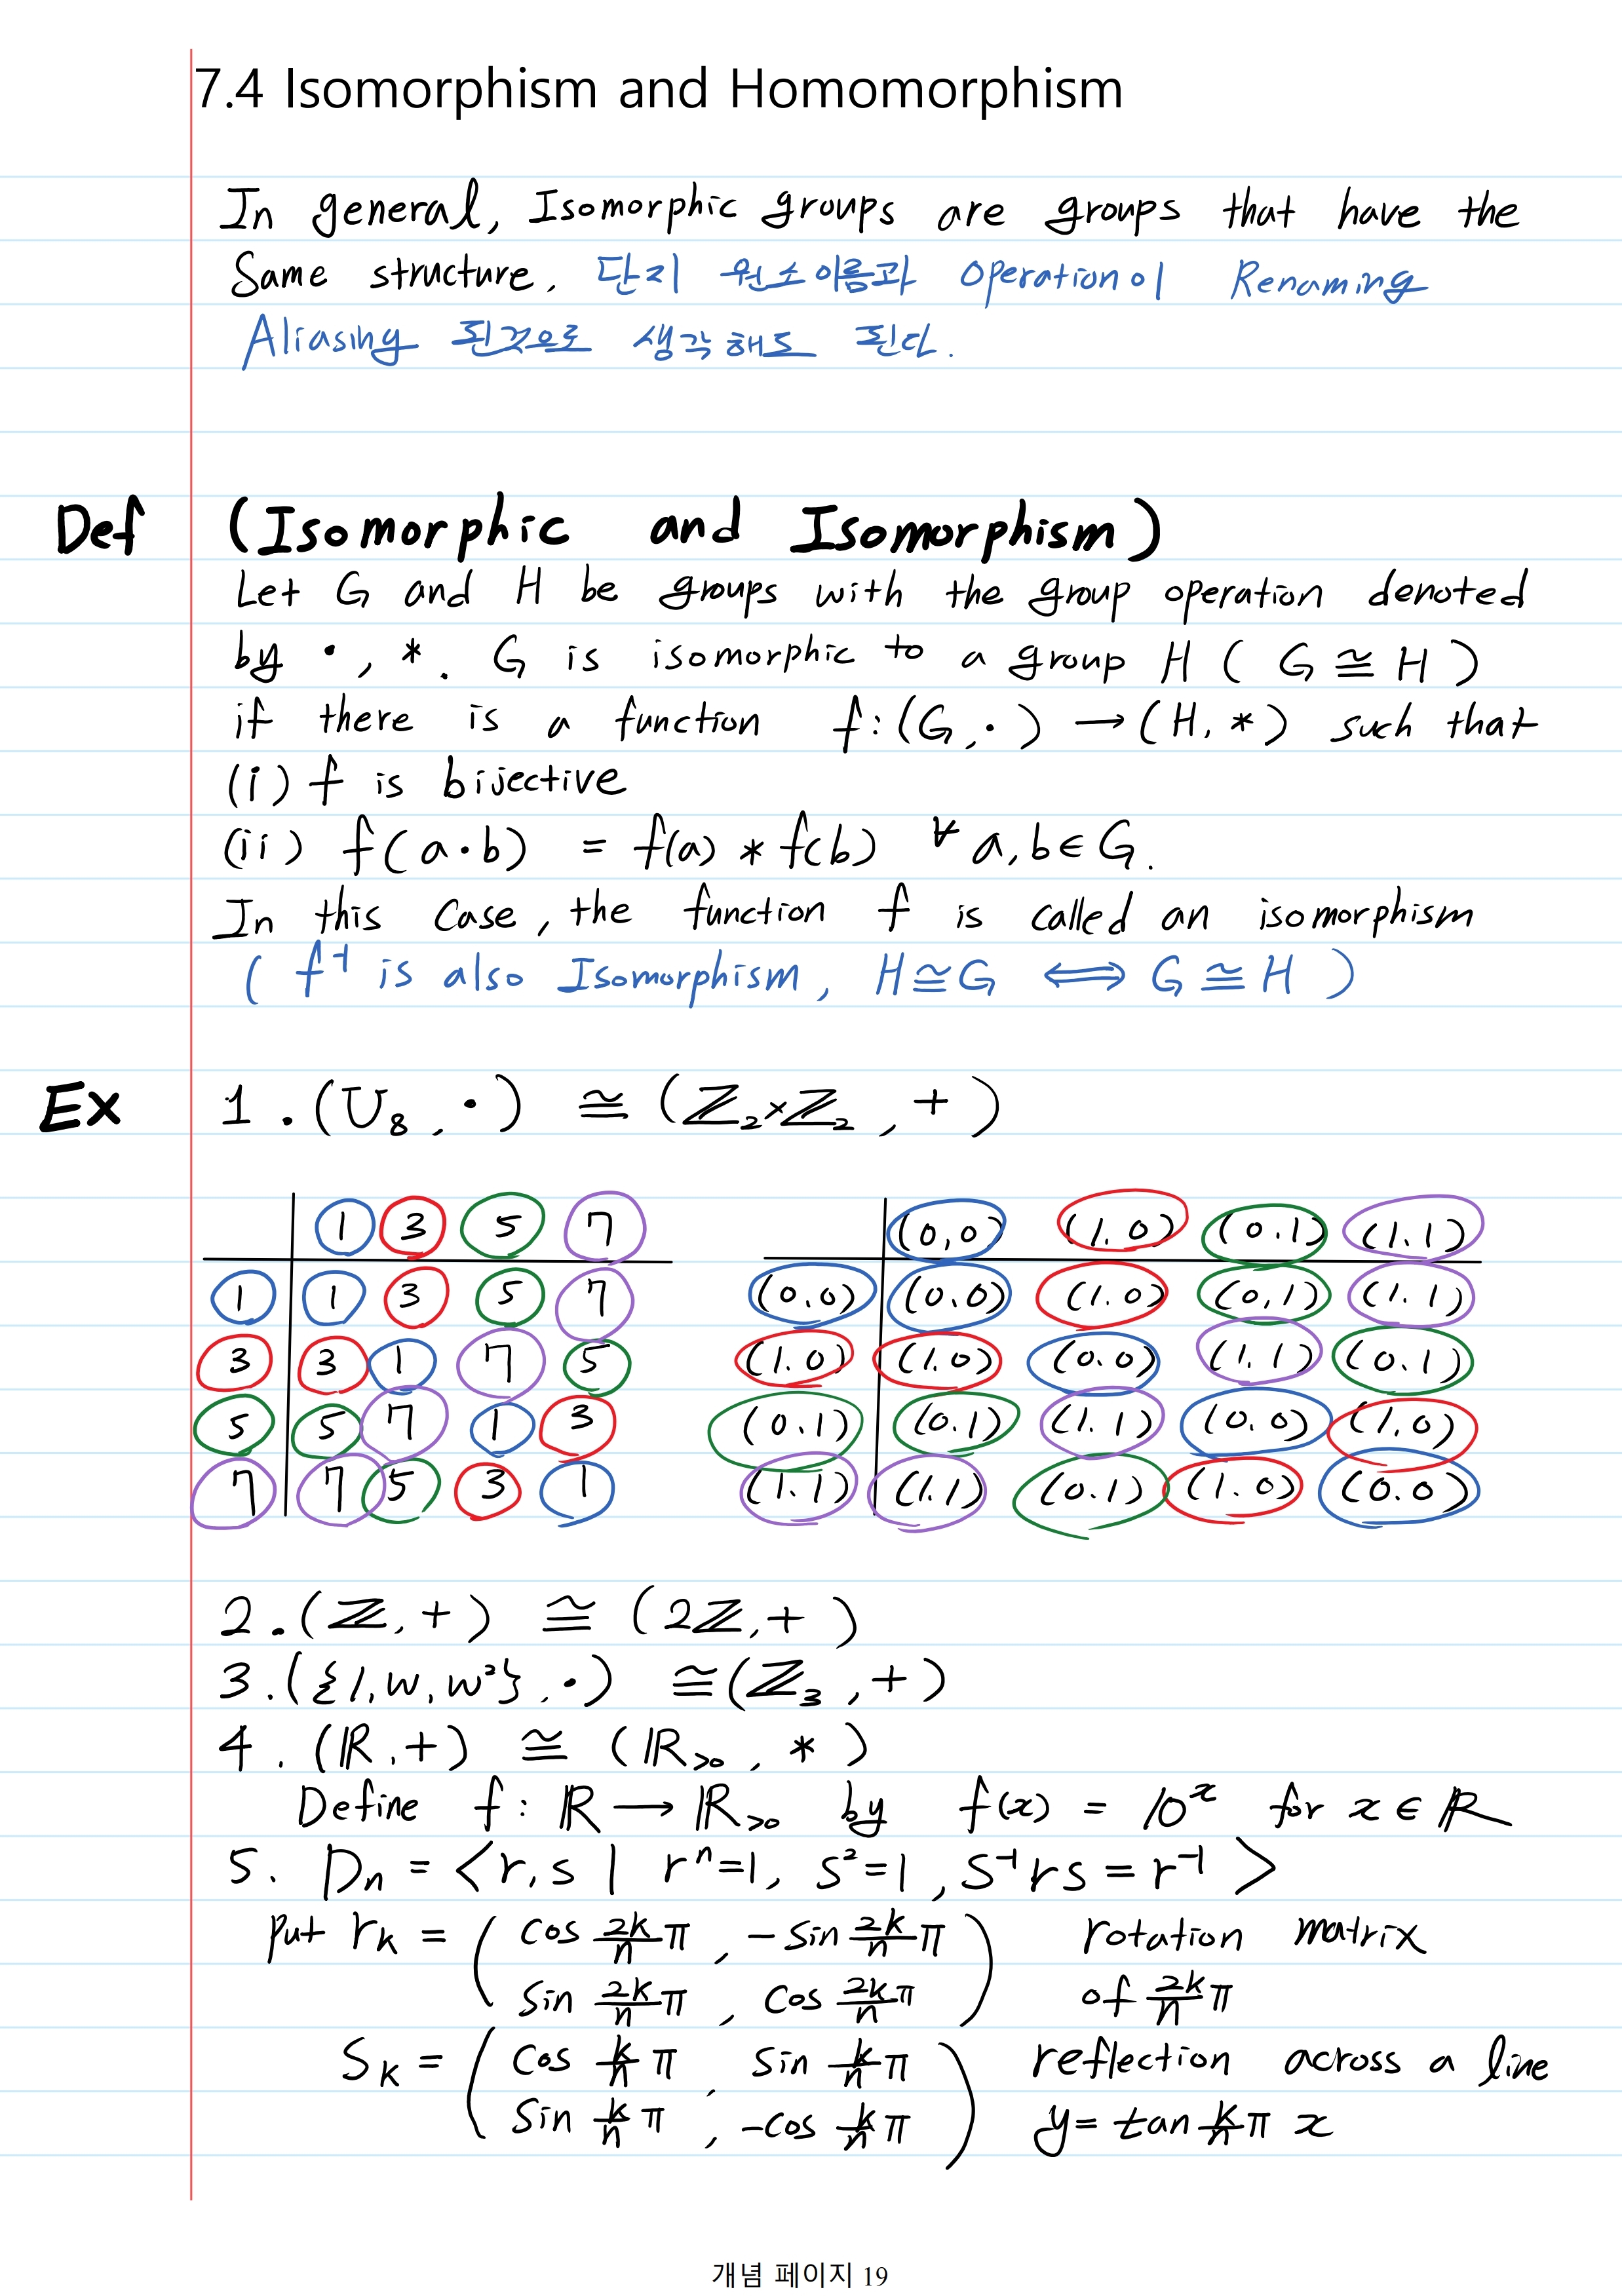 7.4 Isomorphism and Homomorphism
In general, Isomorphic groups are groups that have the
Same structure. 단지 원소이름과 operation이 Renaming
Aliasing 된것으로 생각해도 된다.
Def (Isomorphic and Isomorphism)
Let G and H be groups with the group operation denoted
by ·, *. G is isomorphic to a group H ( G ≅ H )
if there is a function f: (G, ·) → (H, *) such that
(i) f is bijective
(ii) f(a·b) = f(a) * f(b) ∀ a, b ∈ G.
In this case, the function f is called an isomorphism
( f⁻¹ is also Isomorphism, H ≅ G ⟺ G ≅ H )
Ex 1. (U₈, ·) ≅ (ℤ₂×ℤ₂, +)
1 3 5 7 (0,0) (1.0) (0.1) (1.1)
1 1 3 5 7 (0.0) (0.0) (1.0) (0,1) (1.1)
3 3 1 7 5 (1.0) (1.0) (0.0) (1.1) (0.1)
5 5 7 1 3 (0.1) (0.1) (1.1) (0.0) (1.0)
7 7 5 3 1 (1.1) (1.1) (0.1) (1.0) (0.0)
2. (ℤ, +) ≅ (2ℤ, +)
3. ({1, w, w²}, ·) ≅ (ℤ₃, +)
4. (ℝ, +) ≅ (ℝ>₀, *)
Define f: ℝ → ℝ>₀ by f(x) = 10ˣ for x ∈ ℝ
5. Dₙ = <r, s | rⁿ=1, s²=1, s⁻¹rs = r⁻¹>
put rₖ = ( cos 2k/n π, -sin 2k/n π ) rotation matrix
sin 2k/n π, cos 2k/n π of 2k/n π
Sₖ = ( cos k/n π, sin k/n π ) reflection across a line
sin k/n π, -cos k/n π y = tan k/n π x
개념 페이지 19